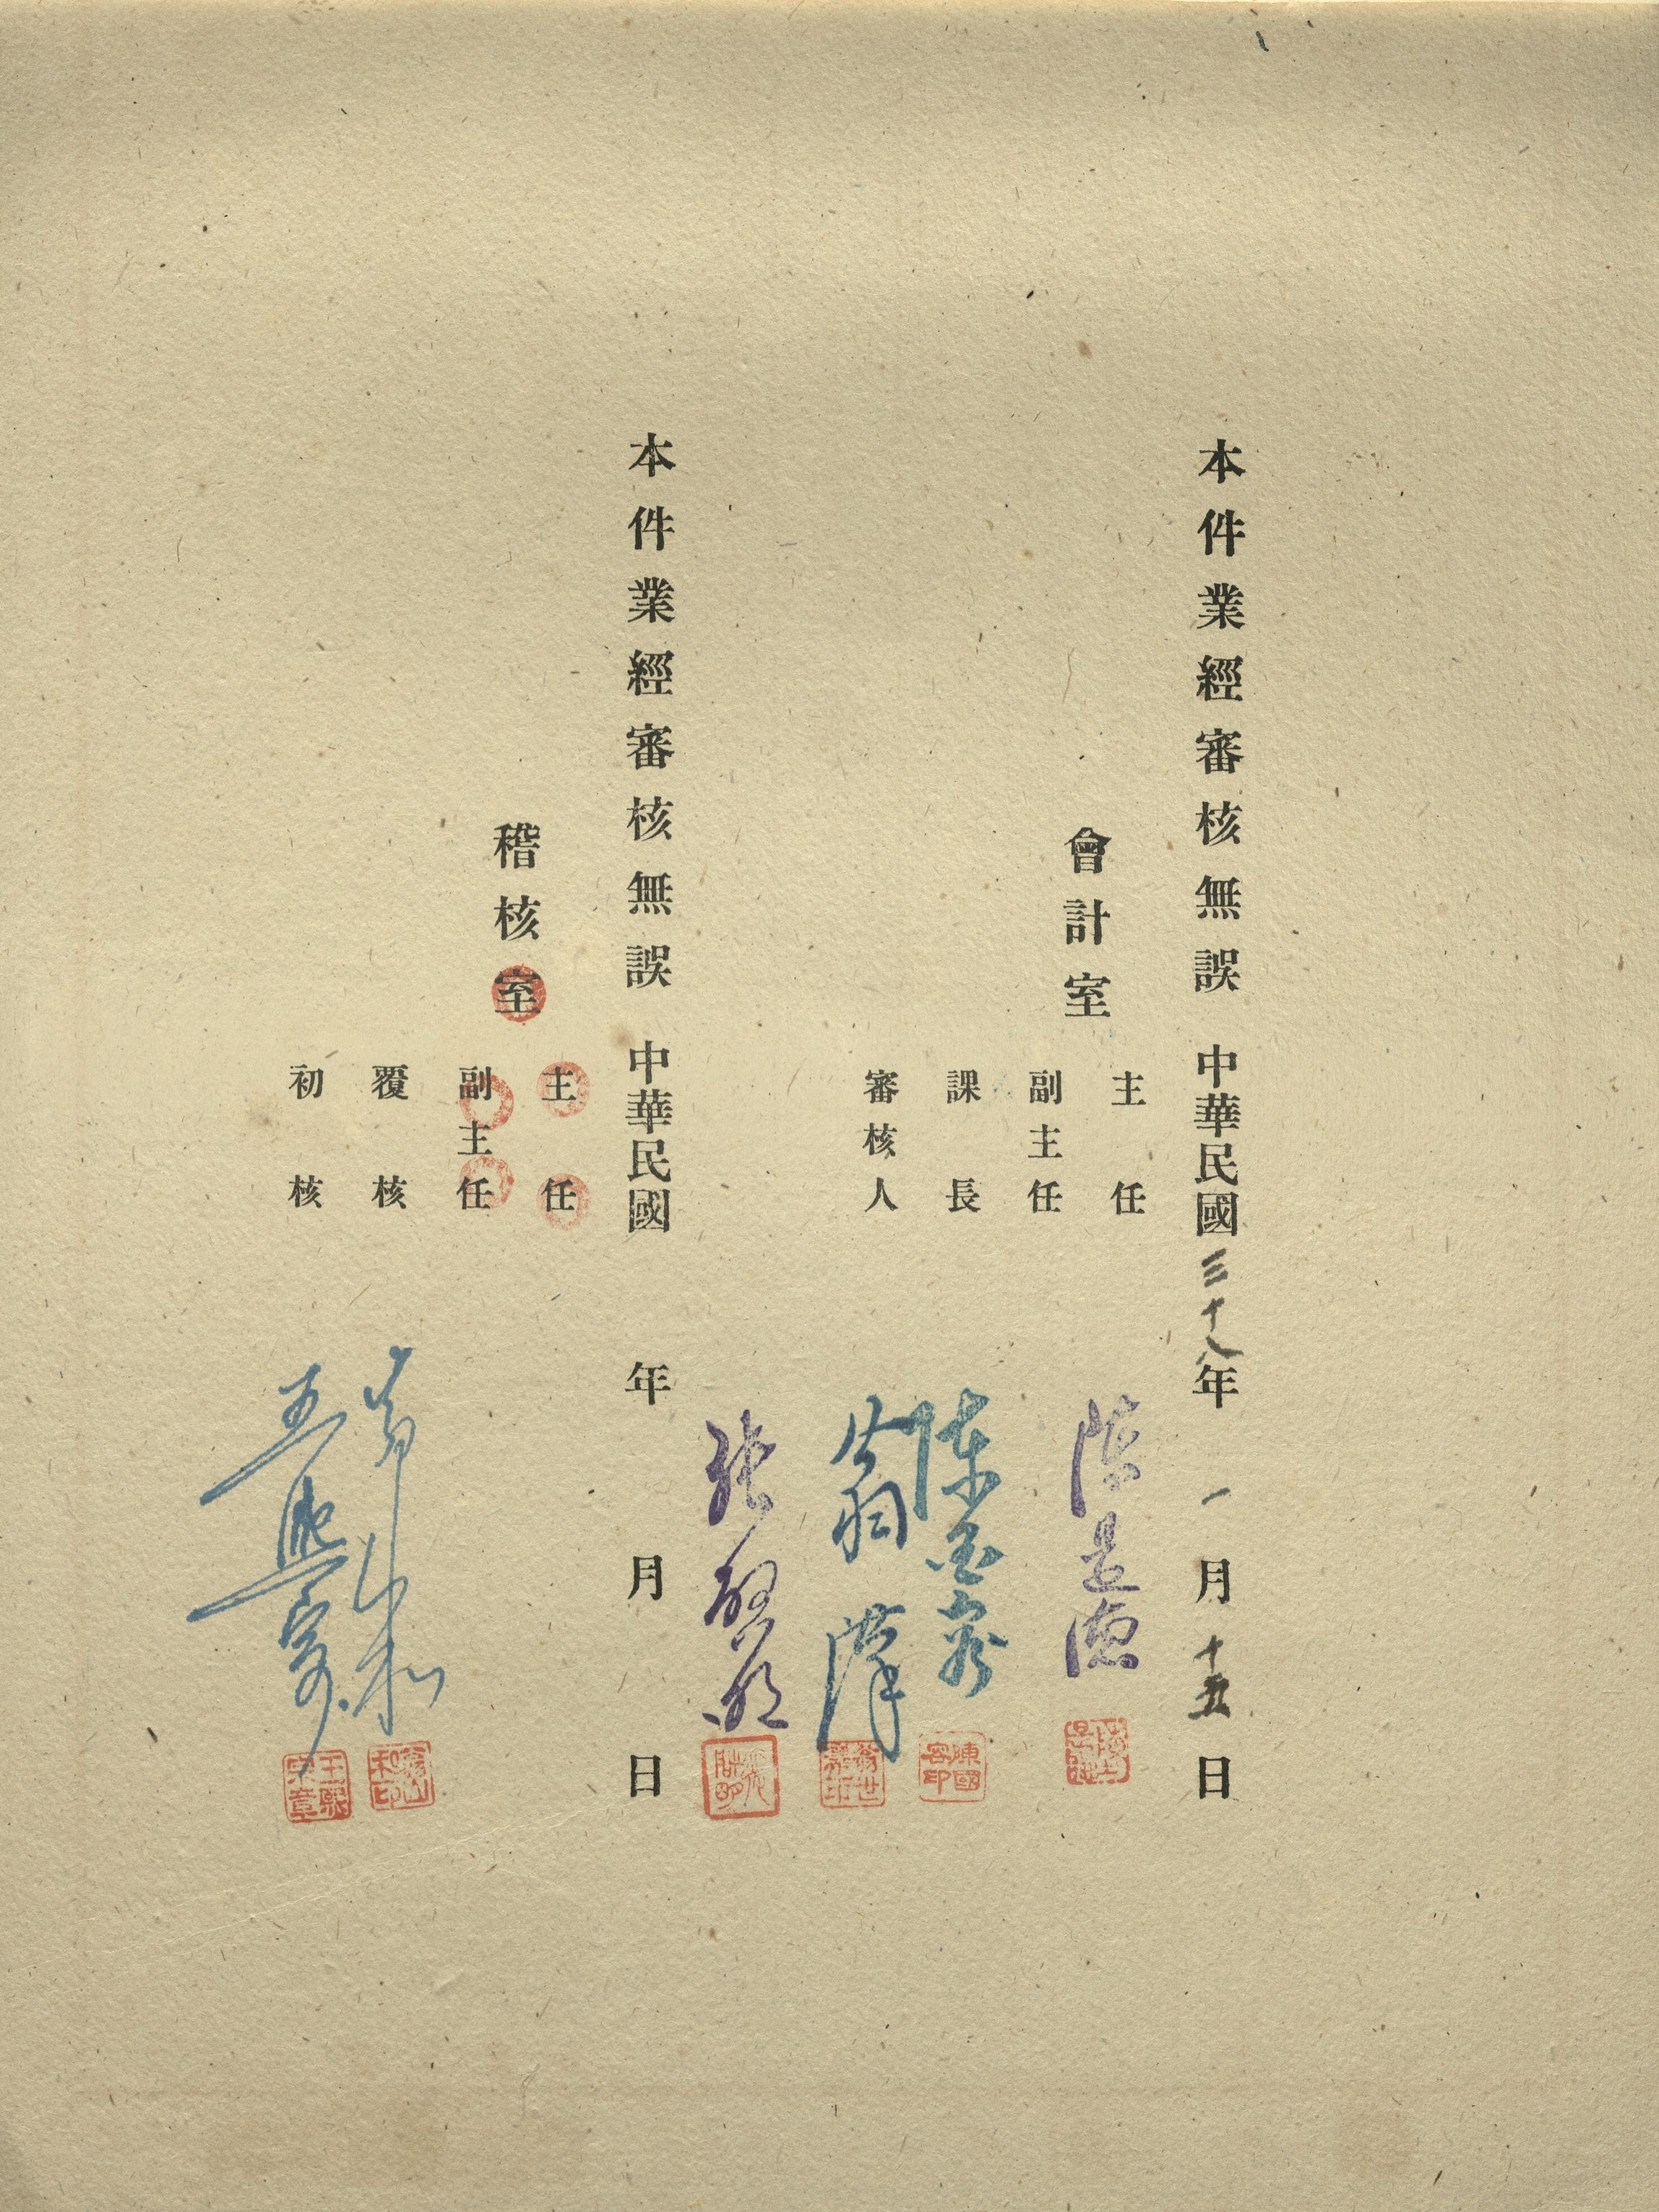 本件業經審核無誤 中華民國三十八年一月十五日
會計室
主任 陳
副主任
課長 陳國容
陳國容印
審核人 翁世
張啟明
本件業經審核無誤 中華民國 年 月 日
稽核室
主任
副主任
覆核 翁山和
翁山和印
初核 王熙宗
王熙宗章